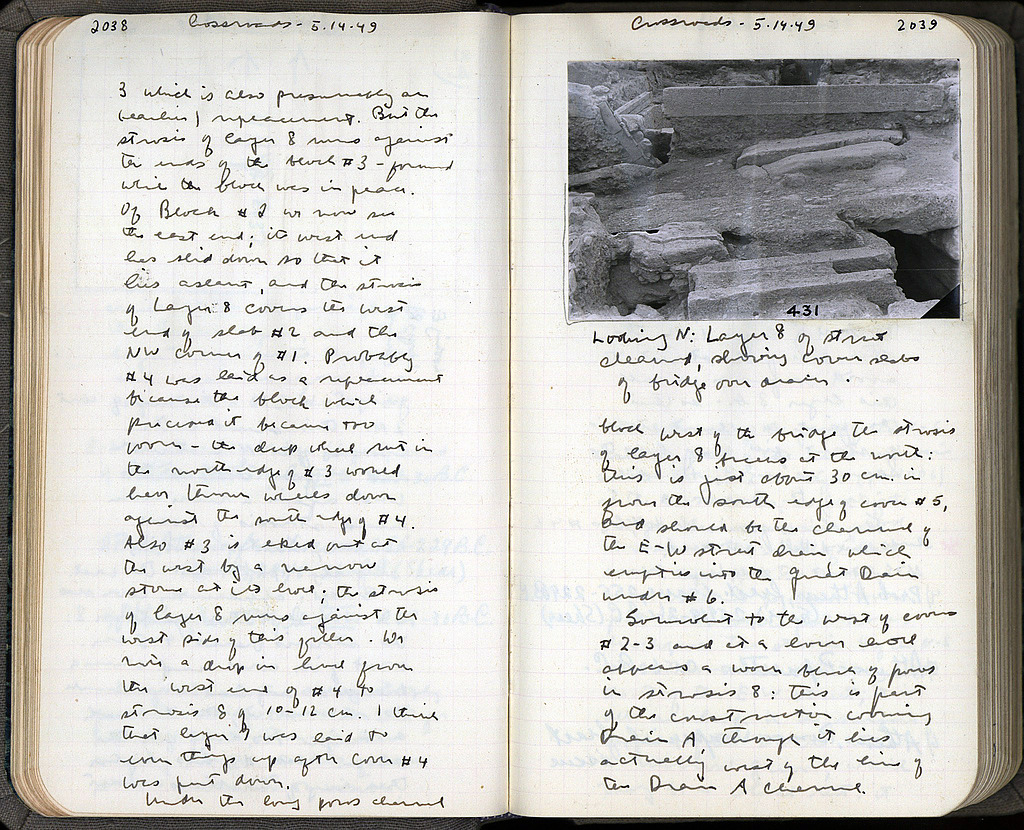 2038 Crossroads - 5.14.49
3 which is also presumably an
(earlier) replacement. But the
strosis of layer 8 runs against
the ends of the block #3 - formed
while the block was in place.
Of Block #2 we now see
the east end; its west end
has slid down so that it
lies aslant, and the strosis
of Layer 8 covers the west
end of slab #2 and the
NW corner of #1. Probably
#4 was laid as a replacement
because the block which
preceded it became too
worn - the deep wheel rut in
the north edge of #3 would
have thrown wheels down
against the south edge of #4.
Also #3 is eked out at
the west by a narrow
stone at its level; the strosis
of layer 8 runs against the
west side of this filler. We
note a drop in level from
the west end of #4 to
strosis 8 of 10-12 cm. I think
that layer 7 was laid to
even things up after Cover #4
was put down.
Under the long poros channel
Crossroads - 5.14.49 2039
431
Looking N: Layer 8 of street
cleaned, showing cover slabs
of bridge over drain.
block west of the bridge the strosis
of layer 8 breaks at the north:
this is just about 30 cm. in
from the south edge of cover #5,
and should be the channel of
the E-W street drain which
empties into the Great Drain
under #6.
Somewhat to the west of covers
#2-3 and at a lower level
appears a worn block of poros
in strosis 8: this is part
of the construction covering
Drain A, though it lies
actually west of the line of
the Drain A channel.